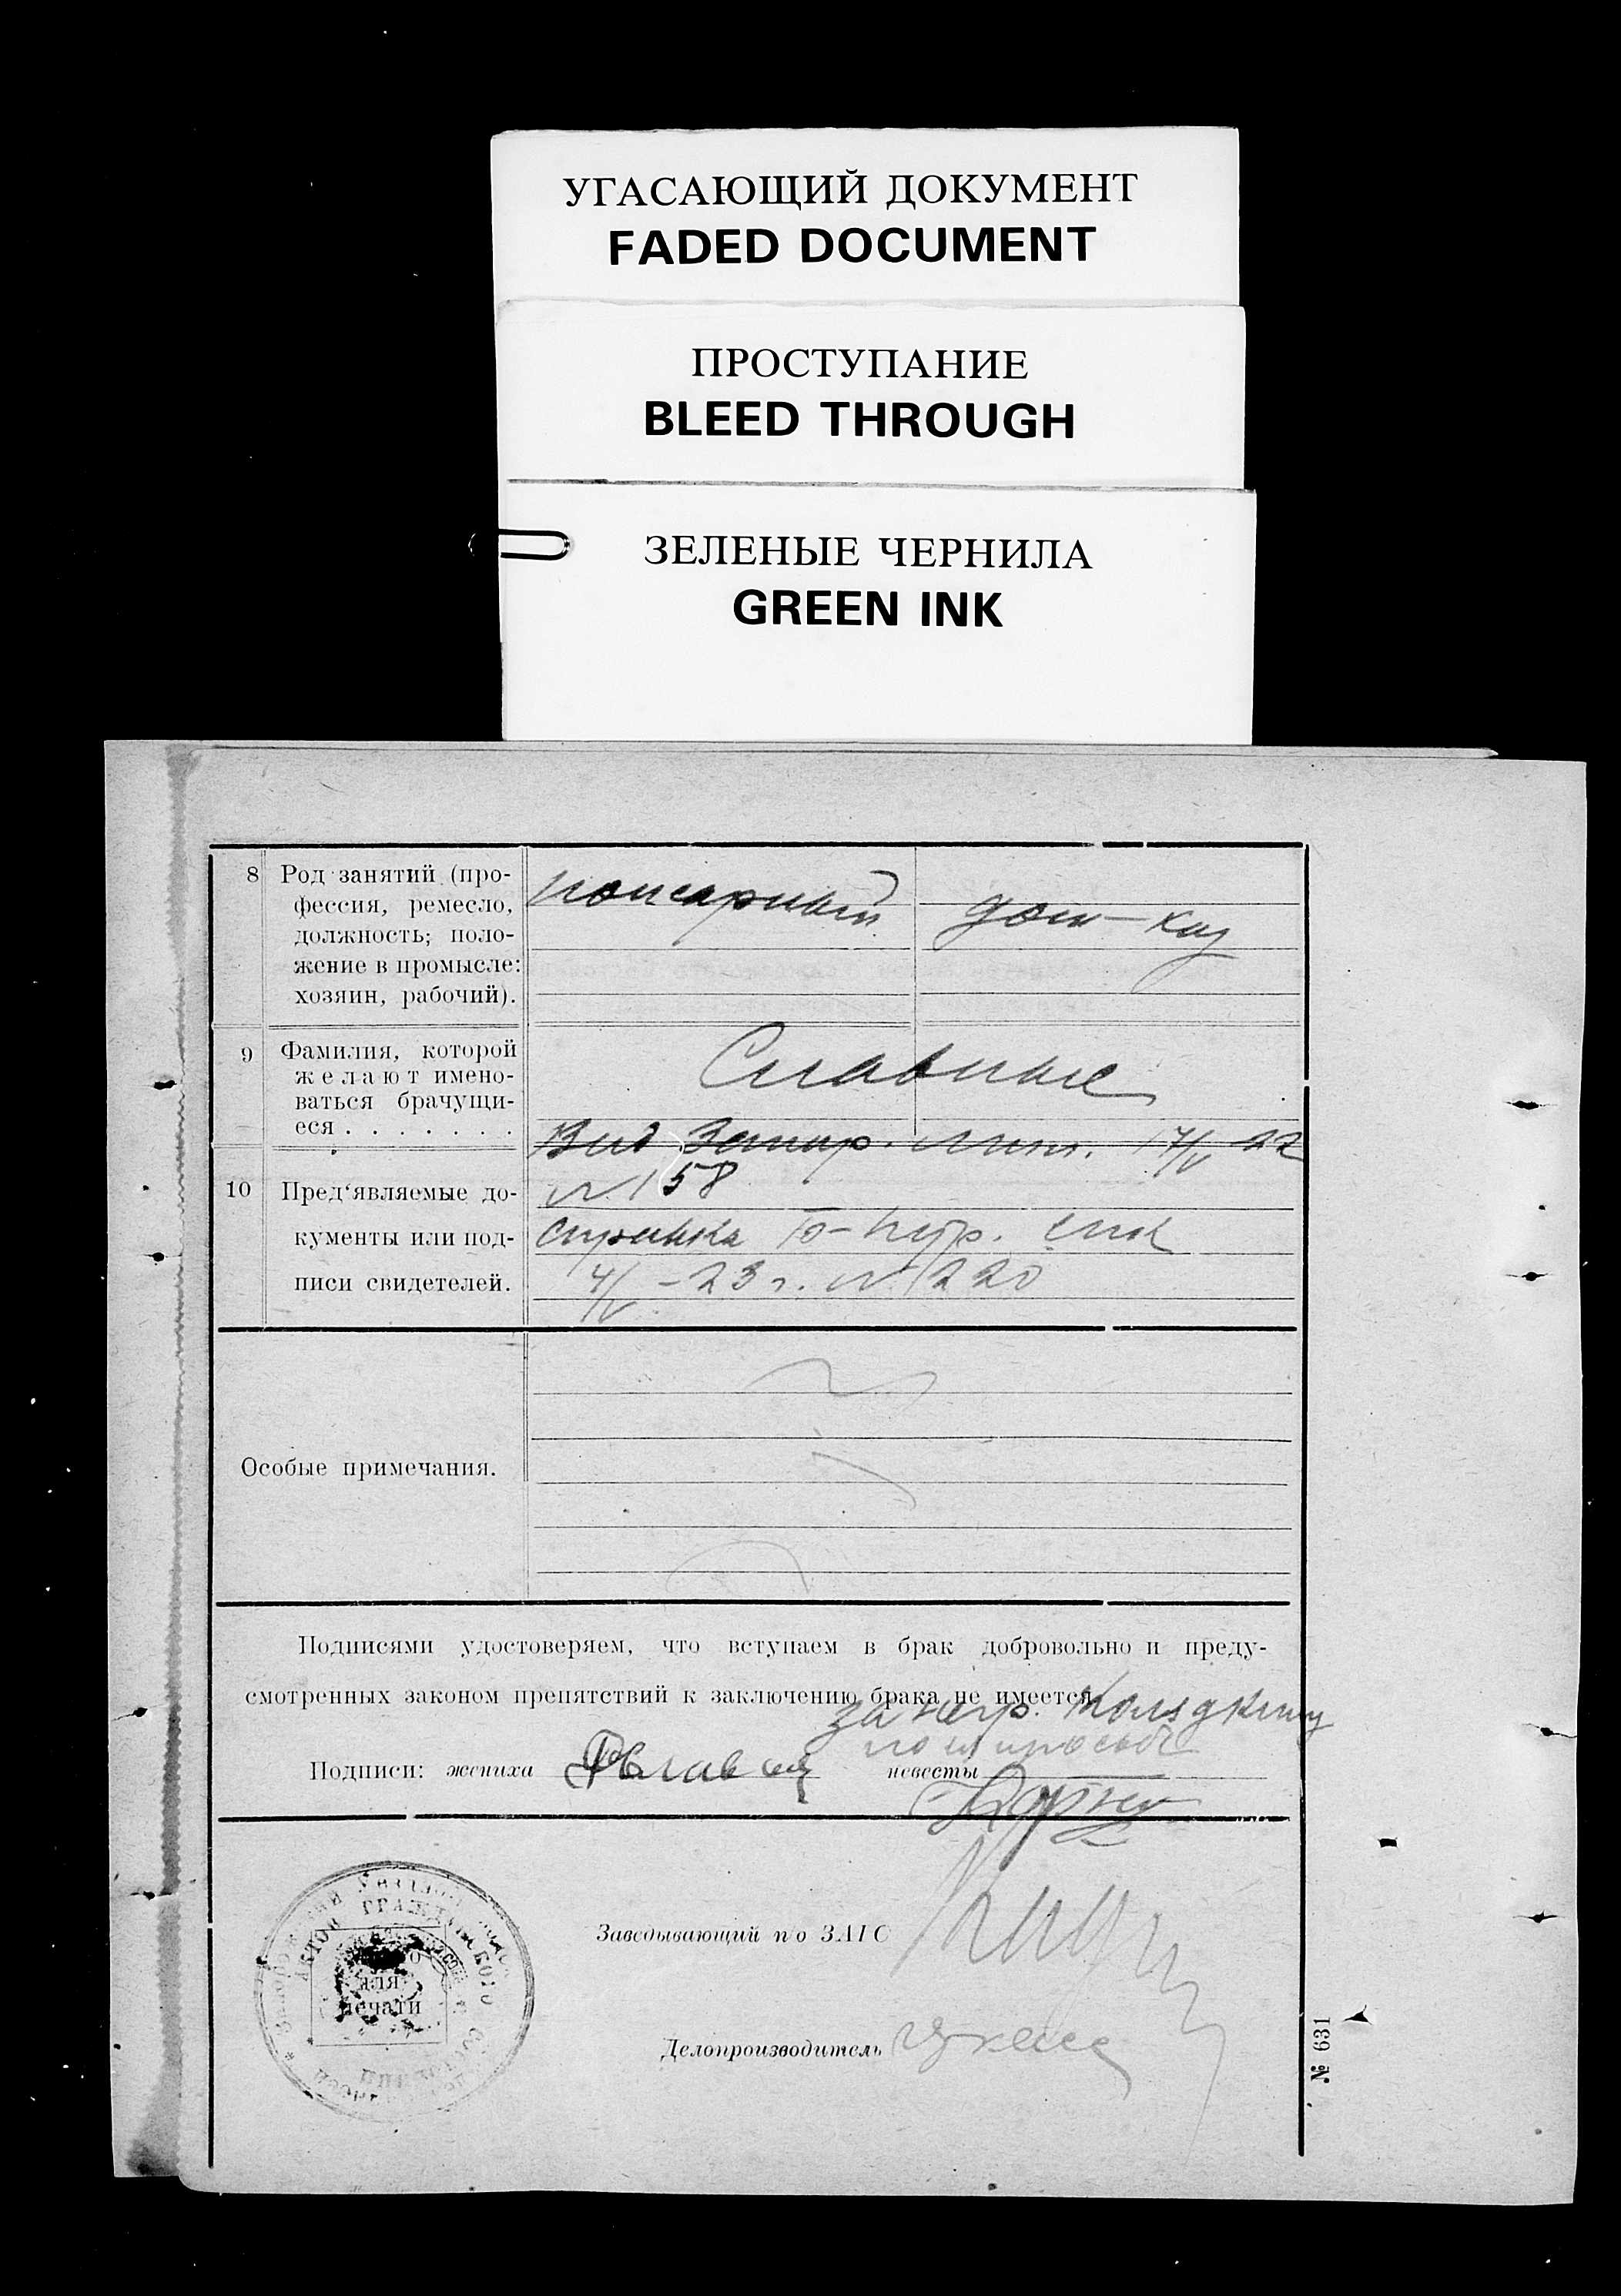 УГАСАЮЩИЙ ДОКУМЕНТ
FADED DOCUMENT
ПРОСТУПАНИЕ
BLEED THROUGH
ЗЕЛЕНЫЕ ЧЕРНИЛА
GREEN INK
8 Род занятий (про-
фессия, ремесло,
должность; поло-
жение в промысле:
хозяин, рабочий).
пожарный
дом-хоз
9 Фамилия, которой
желают имено-
ваться брачущи-
еся . . . . . . .
Славные
Вид 17/V 22
№ 158
10 Пред‘являемые до-
кументы или под-
писи свидетелей.
справка
4/V -23 г. № 220
Особые примечания.
Подписями удостоверяем, что вступаем в брак добровольно и преду-
смотренных законом препятствий к заключению брака не имеется.
за негр.
Подписи: жениха
невесты
Заведывающий п/о ЗАГС
Делопроизводитель
АКТОВ ГРАЖДАНСКОГО
для
печати
№ 631